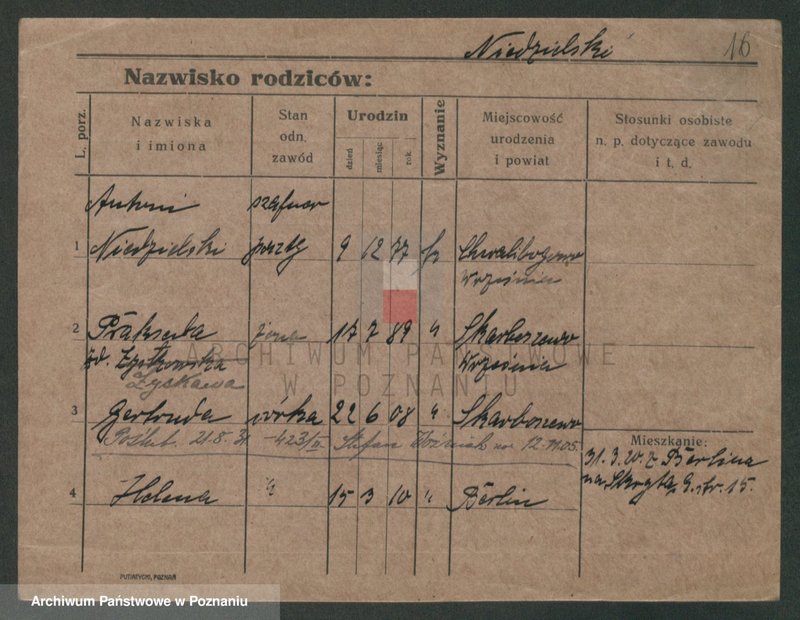 Niedzielski 16
Nazwisko rodziców:
L. porz.
Nazwiska
i imiona
Stan
odn.
zawód
Urodzin
dzień
miesiąc
rok
Wyznanie
Miejscowość
urodzenia
i powiat
Stosunki osobiste
n. p. dotyczące zawodu
i t. d.
Antoni szafner
1 Niedzielski poczty 9 12 77 Chwalibogowo
Września
2 Prakseda żona 17 7 89 " Skarboszewo
zd. Września
Zyskawa
ARCHIWUM PAŃSTWOWE
W POZNANIU
3 Gertruda córka 22 6 08 " Skarboszewo
21.8.31 -423/II Stefan Woźniak ur. 12.11.05.
Mieszkanie:
31.3.20. z Berlina
na 15.
4 Helena " 15 3 10 " Berlin
PUTIATYCKI, POZNAŃ
Archiwum Państwowe w Poznaniu